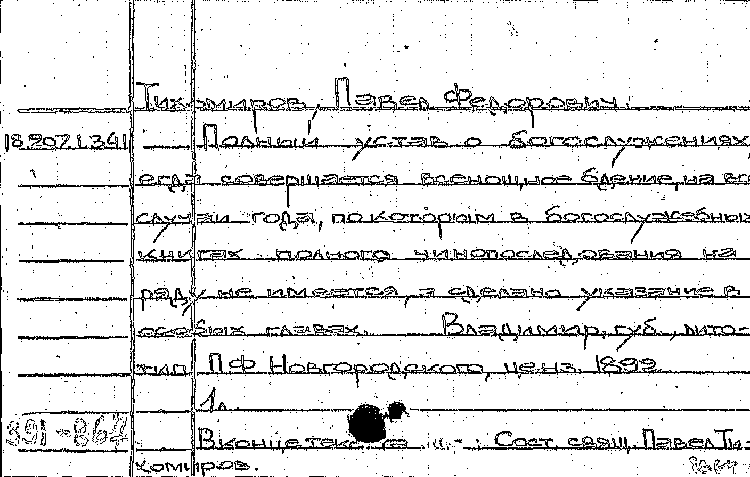 Тихомиров, Павел Федорович.
18.207.1.341 Полный устав о богослужениях
егда совершается всенощное бдение, на все
случаи года, по которым в богослужебных
книгах полного чинопоследования на
ряду не имеется, а сделано указание в
особых главах. Владимир, губ., лито-
тип ПФ Новгородского, ценз. 1899.
1 л.
391-867 В конце текста : Сост. свящ. Павел Ти-
хомиров.